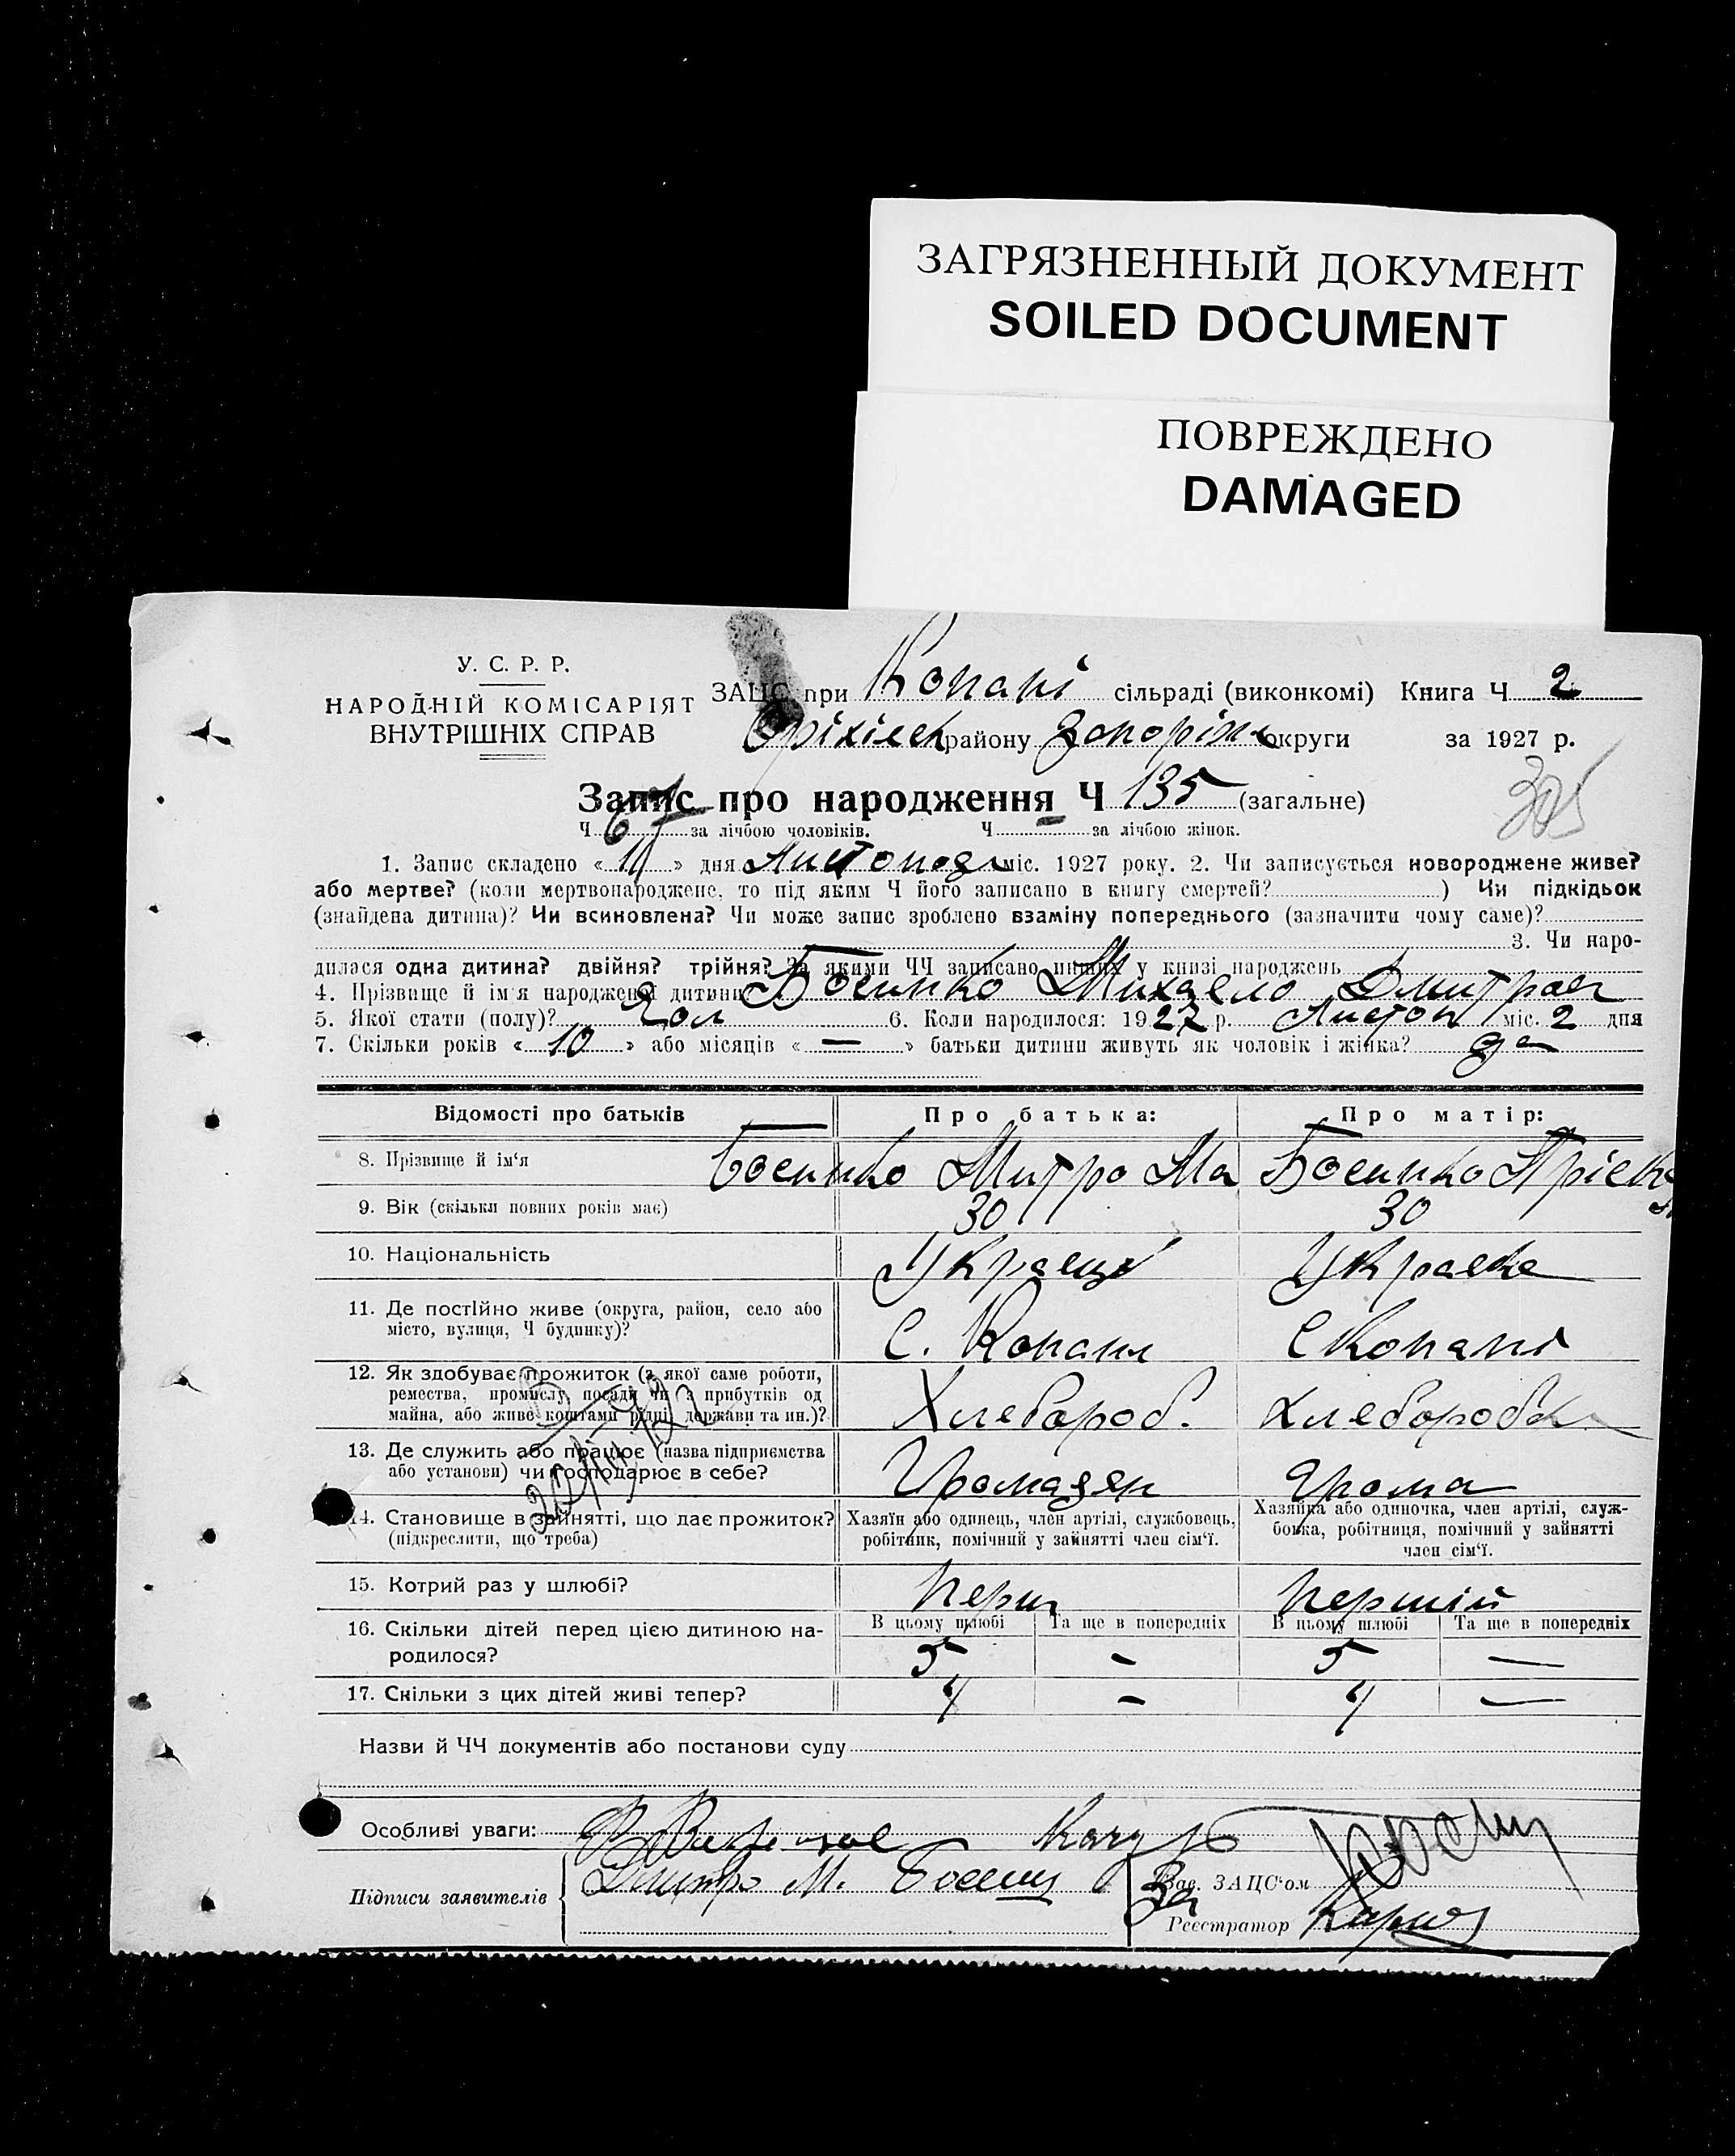 ЗАГРЯЗНЕННЫЙ ДОКУМЕНТ
SOILED DOCUMENT
ПОВРЕЖДЕНО
DAMAGED
У. С. Р. Р.
НАРОДНІЙ КОМІСАРІЯТ
ВНУТРІШНІХ СПРАВ
ЗАЦС при Копані сільраді (виконкомі) Книга Ч 2
Оріхівськ району Запоріж округи за 1927 р.
Запис про народження Ч 135 (загальне)
305
Ч 67 за лічбою чоловіків. Ч — за лічбою жінок.
1. Запис складено « » дня Листопада міс. 1927 року. 2. Чи записується новороджене живе?
або мертве? (коли мертвонароджене, то під яким Ч його записано в книгу смертей? ) Чи підкідьок
(знайдена дитина)? Чи всиновлена? Чи може запис зроблено взаміну попереднього (зазначити чому саме)?
3. Чи наро-
дилася одна дитина? двійня? трійня? За якими ЧЧ записано инших у книзі народжень
4. Прізвище й ім'я народженої дитини? Боенко Михаело
5. Якої стати (полу)? 6. Коли народилося: 1927 р. Листоп міс. 2 дня
7. Скільки років « 10 » або місяців « — » батьки дитини живуть як чоловік і жінка? да
Відомості про батьків Про батька: Про матір:
8. Прізвище й ім'я Боенко Митро Ма Боенко Пріська
9. Вік (скільки повних років має) 30 30
10. Національність Украець Украека
11. Де постійно живе (округа, район, село або
місто, вулиця, Ч будинку)? С. Копани С Копані
12. Як здобуває прожиток (з якої саме роботи,
ремества, промислу, посади чи з прибутків од
майна, або живе коштами рідні, держави та ин.)? Хлебороб. Хлеборобка
13. Де служить або працює (назва підприємства
або установи) чи господарює в себе? Грамадян Грома
14. Становище в зайнятті, що дає прожиток? Хазяїн або одинець, член артілі, службовець, Хазяйка або одиночка, член артілі, служ-
(підкреслити, що треба) робітник, помічний у зайнятті член сім'ї. бовка, робітниця, помічний у зайнятті
член сім'ї.
15. Котрий раз у шлюбі? перш першій
В цьому шлюбі Та ще в попередніх В цьому шлюбі Та ще в попередніх
16. Скільки дітей перед цією дитиною на-
родилося? 5 - 5 —
17. Скільки з цих дітей живі тепер? 4 - 4 —
Назви й ЧЧ документів або постанови суду
Особливі уваги:
Підписи заявителів Дмитро М. Зав. ЗАЦС'ом
За Реєстратор